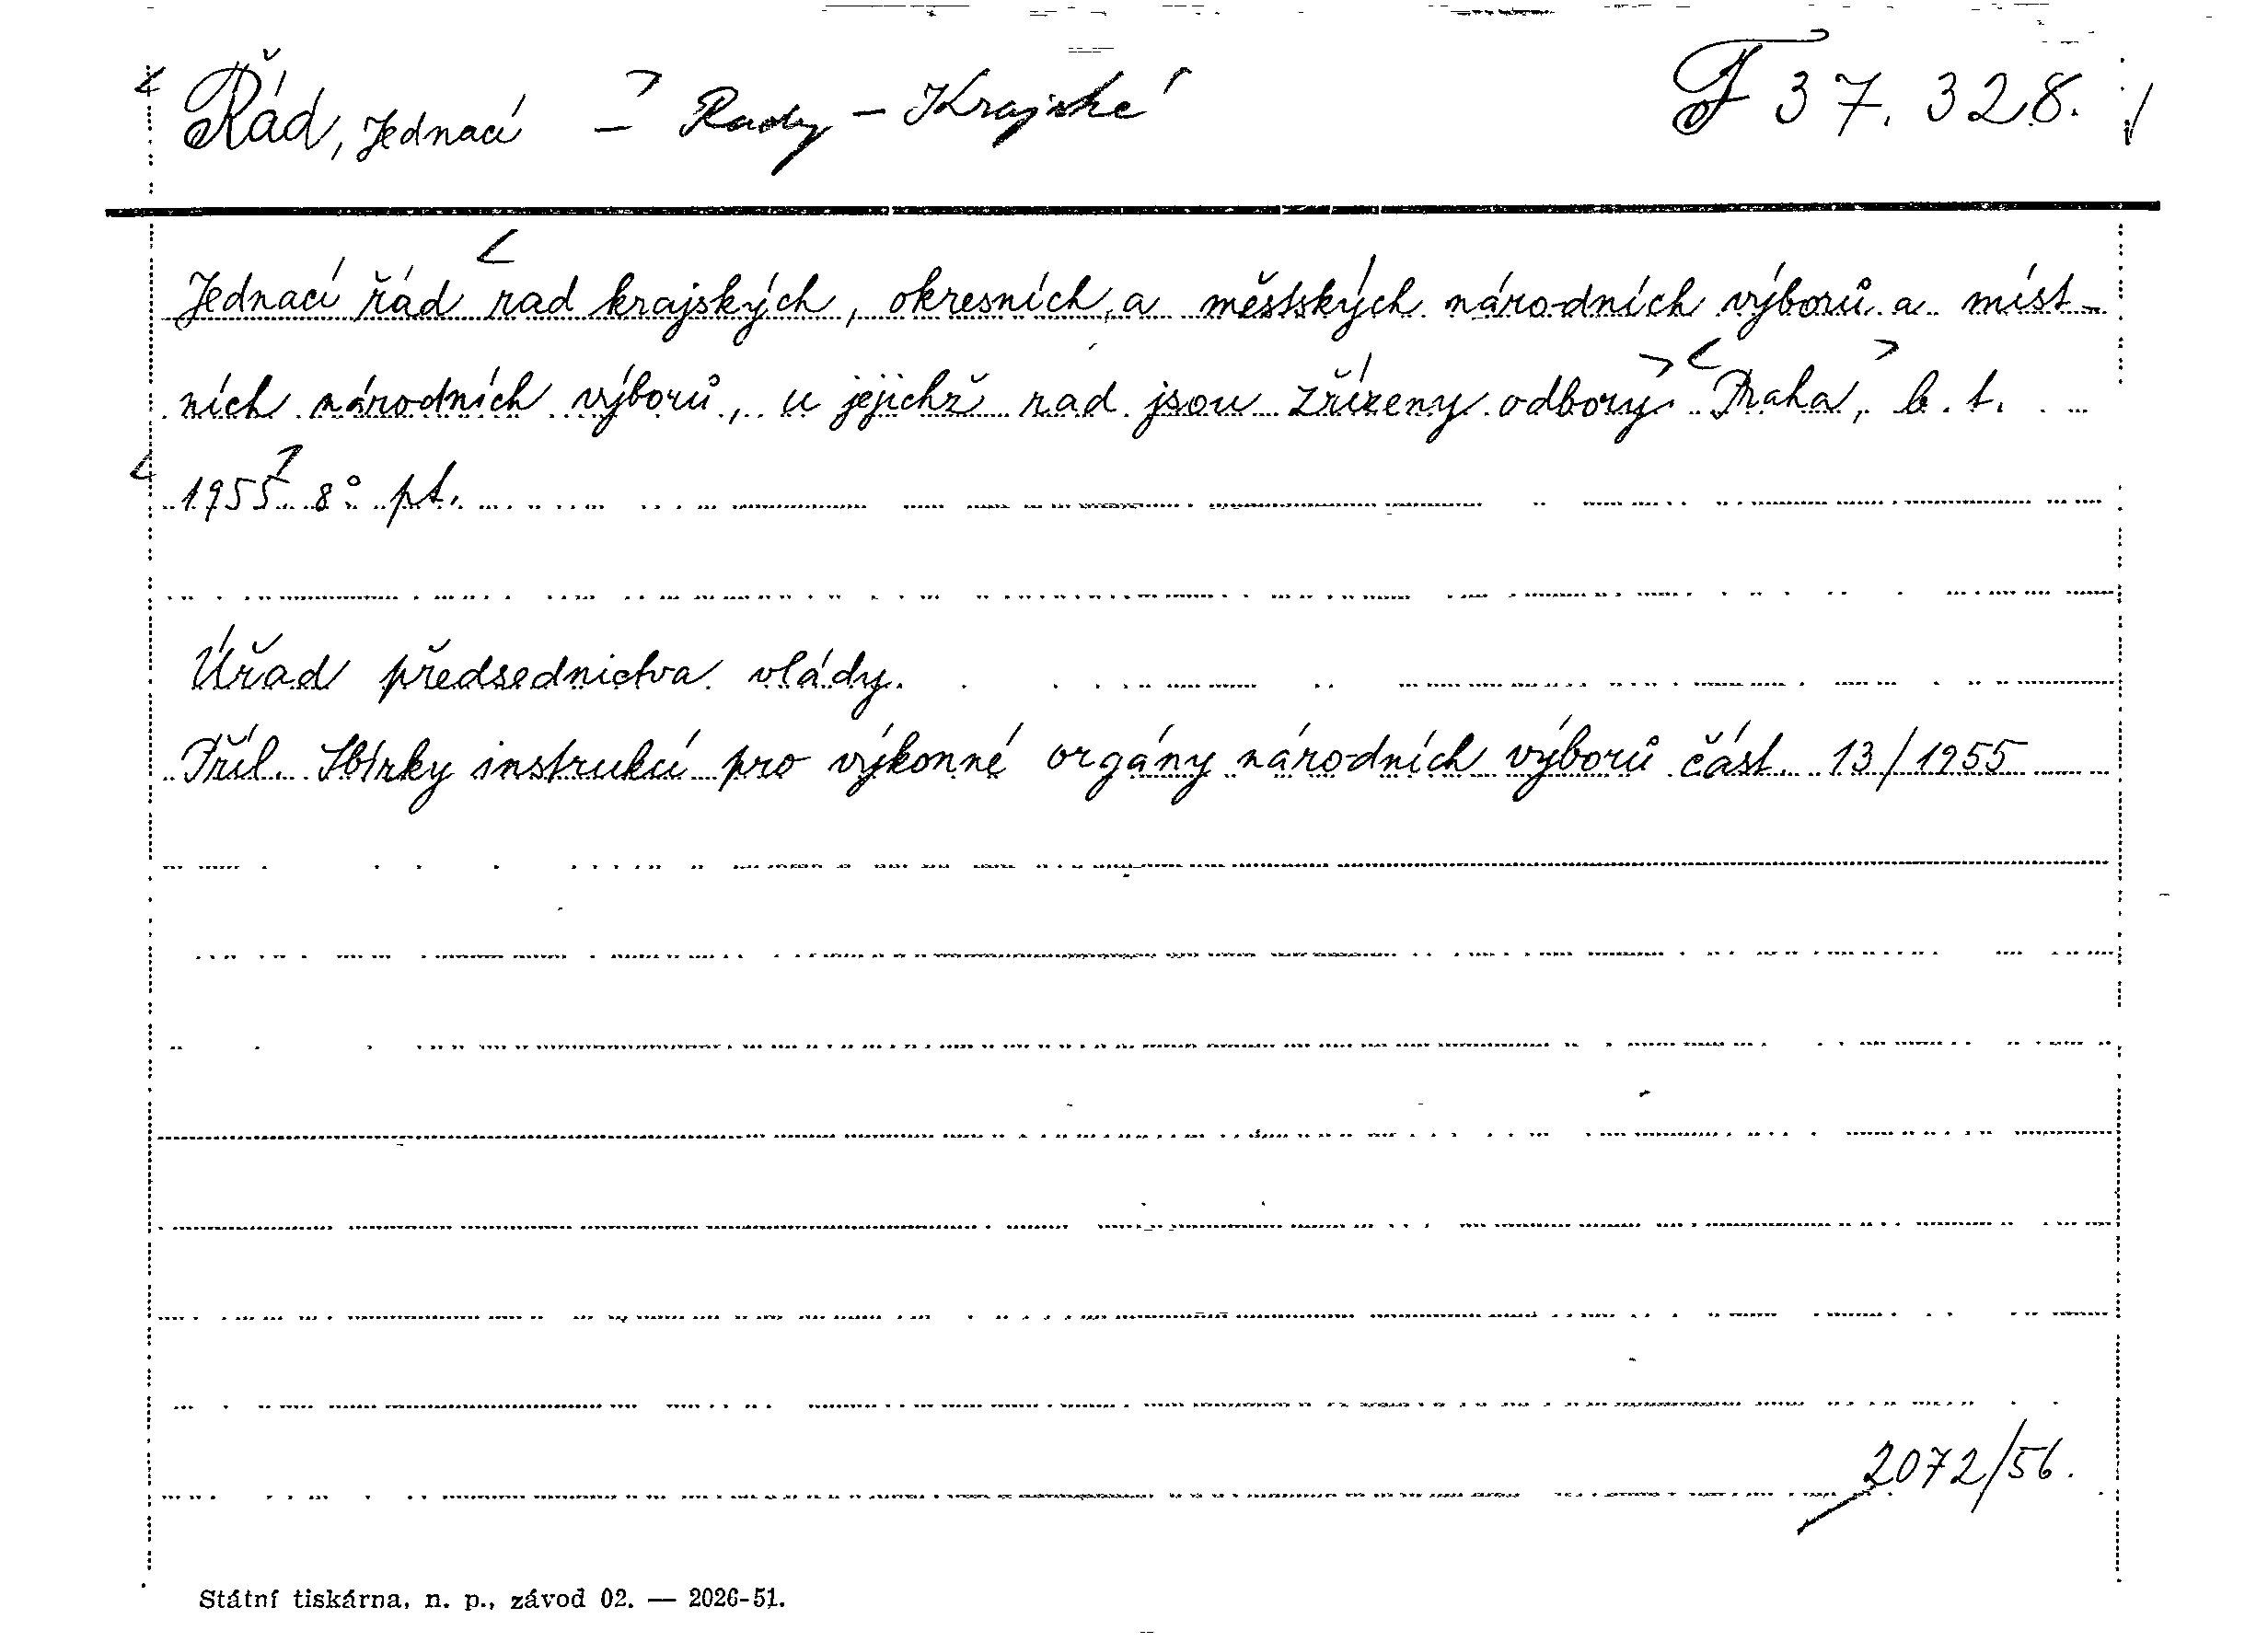 Řád, Jednací – Rady – Krajské F 37.328.
Jednací řád rad krajských, okresních, a městských národních výborů a míst-
ních národních výborů, u jejichž rad jsou zřízeny odbory. Praha, b. t.
1955. 8° pt.
Úřad předsednictva vlády.
Příl. Sbírky instrukcí pro výkonné orgány národních výborů část 13/1955
2072/56.
Státní tiskárna, n. p., závod 02. — 2026-51.